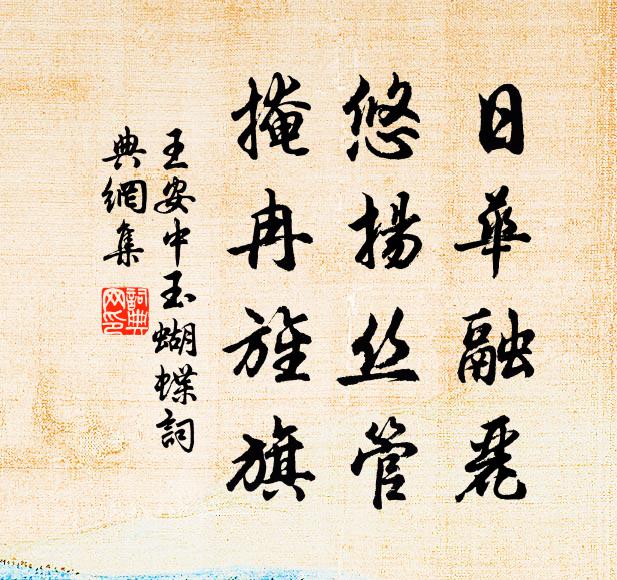 日華融麗
悠揚丝管
掩冉旌旗
王安中玉蝴蝶詞
典網集
詞典网印